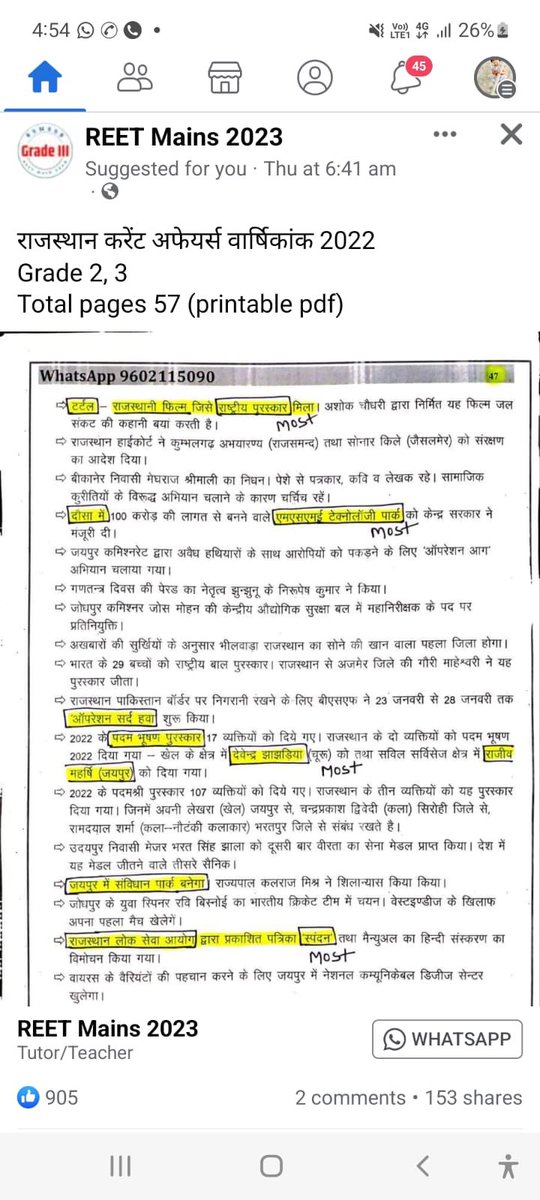 4:54
Vo)) 4G
LTE1 26%
45
REET Mains 2023
Grade III
Suggested for you · Thu at 6:41 am
राजस्थान करेंट अफेयर्स वार्षिकांक 2022
Grade 2, 3
Total pages 57 (printable pdf)
WhatsApp 9602115090 47
⇨ टर्टल – राजस्थानी फिल्म जिसे राष्ट्रीय पुरस्कार मिला। अशोक चौधरी द्वारा निर्मित यह फिल्म जल
संकट की कहानी बया करती है।
Most
⇨ राजस्थान हाईकोर्ट ने कुम्भलगढ़ अभयारण्य (राजसमन्द) तथा सोनार किले (जैसलमेर) को संरक्षण
का आदेश दिया।
⇨ बीकानेर निवासी मेघराज श्रीमाली का निधन। पेशे से पत्रकार, कवि व लेखक रहे। सामाजिक
कुरीतियों के विरूद्ध अभियान चलाने के कारण चर्चिच रहें।
⇨ दौसा में 100 करोड़ की लागत से बनने वाले एमएसएमई टेक्नोलॉजी पार्क को केन्द्र सरकार ने
मजूरी दी।
Most
⇨ जयपुर कमिश्नरेट द्वारा अवैध हथियारों के साथ आरोपियों को पकड़ने के लिए 'ऑपरेशन आग'
अभियान चलाया गया।
⇨ गणतन्त्र दिवस की पेरड का नेतृत्व झुन्झुनू के निरूपेष कुमार ने किया।
⇨ जोधपुर कमिश्नर जोस मोहन की केन्द्रीय औद्योगिक सुरक्षा बल में महानिरीक्षक के पद पर
प्रतिनियुक्ति।
⇨ अखबारों की सुर्खियों के अनुसार भीलवाड़ा राजस्थान का सोने की खान वाला पहला जिला होगा।
⇨ भारत के 29 बच्चों को राष्ट्रीय बाल पुरस्कार। राजस्थान से अजमेर जिले की गौरी माहेश्वरी ने यह
पुरस्कार जीता।
⇨ राजस्थान पाकिस्तान बॉर्डर पर निगरानी रखने के लिए बीएसएफ ने 23 जनवरी से 28 जनवरी तक
'ऑपरेशन सर्द हवा' शुरू किया।
⇨ 2022 के पदम भूषण पुरस्कार 17 व्यक्तियों को दिये गए। राजस्थान के दो व्यक्तियों को पदम भूषण
2022 दिया गया – खेल के क्षेत्र में देवेन्द्र झाझड़िया (चूरू) को तथा सविल सर्विसेज क्षेत्र में राजीव
महर्षि (जयपुर) को दिया गया।
Most
⇨ 2022 के पदमश्री पुरस्कार 107 व्यक्तियों को दिए गए। राजस्थान के तीन व्यक्तियों को यह पुरस्कार
दिया गया। जिनमें अवनी लेखरा (खेल) जयपुर से, चन्द्रप्रकाश द्विवेदी (कला) सिरोही जिले से,
रामदयाल शर्मा (कला–नौटंकी कलाकार) भरतपुर जिले से संबंध रखते है।
⇨ उदयपुर निवासी मेजर भरत सिंह झाला को दूसरी बार वीरता का सेना मेडल प्राप्त किया। देश में
यह मेडल जीतने वाले तीसरे सैनिक।
⇨ जयपुर में संविधान पार्क बनेगा राज्यपाल कलराज मिश्र ने शिलान्यास किया किया।
⇨ जोधपुर के युवा स्पिनर रवि बिस्नोई का भारतीय क्रिकेट टीम में चयन। वेस्टइण्डीज के खिलाफ
अपना पहला मैच खेलेगें।
⇨ राजस्थान लोक सेवा आयोग द्वारा प्रकाशित पत्रिका स्पंदन तथा मैन्युअल का हिन्दी संस्करण का
विमोचन किया गया।
Most
⇨ वायरस के वैरियंटों की पहचान करने के लिए जयपुर में नेशनल कम्यूनिकेबल डिजीज सेन्टर
खुलेगा।
REET Mains 2023
Tutor/Teacher
WHATSAPP
905
2 comments • 153 shares